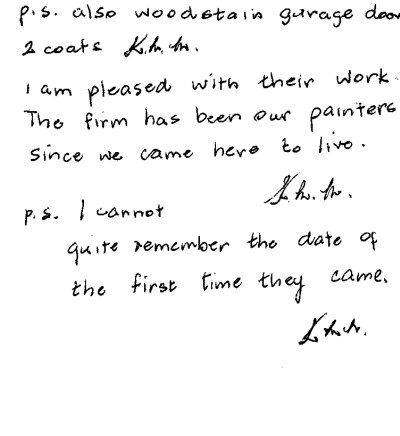 p.s. also woodstain garage door
2 coats K.h.h.
I am pleased with their work.
The firm has been our painters
since we came here to live.
p.s. I cannot
quite remember the date of
the first time they came.